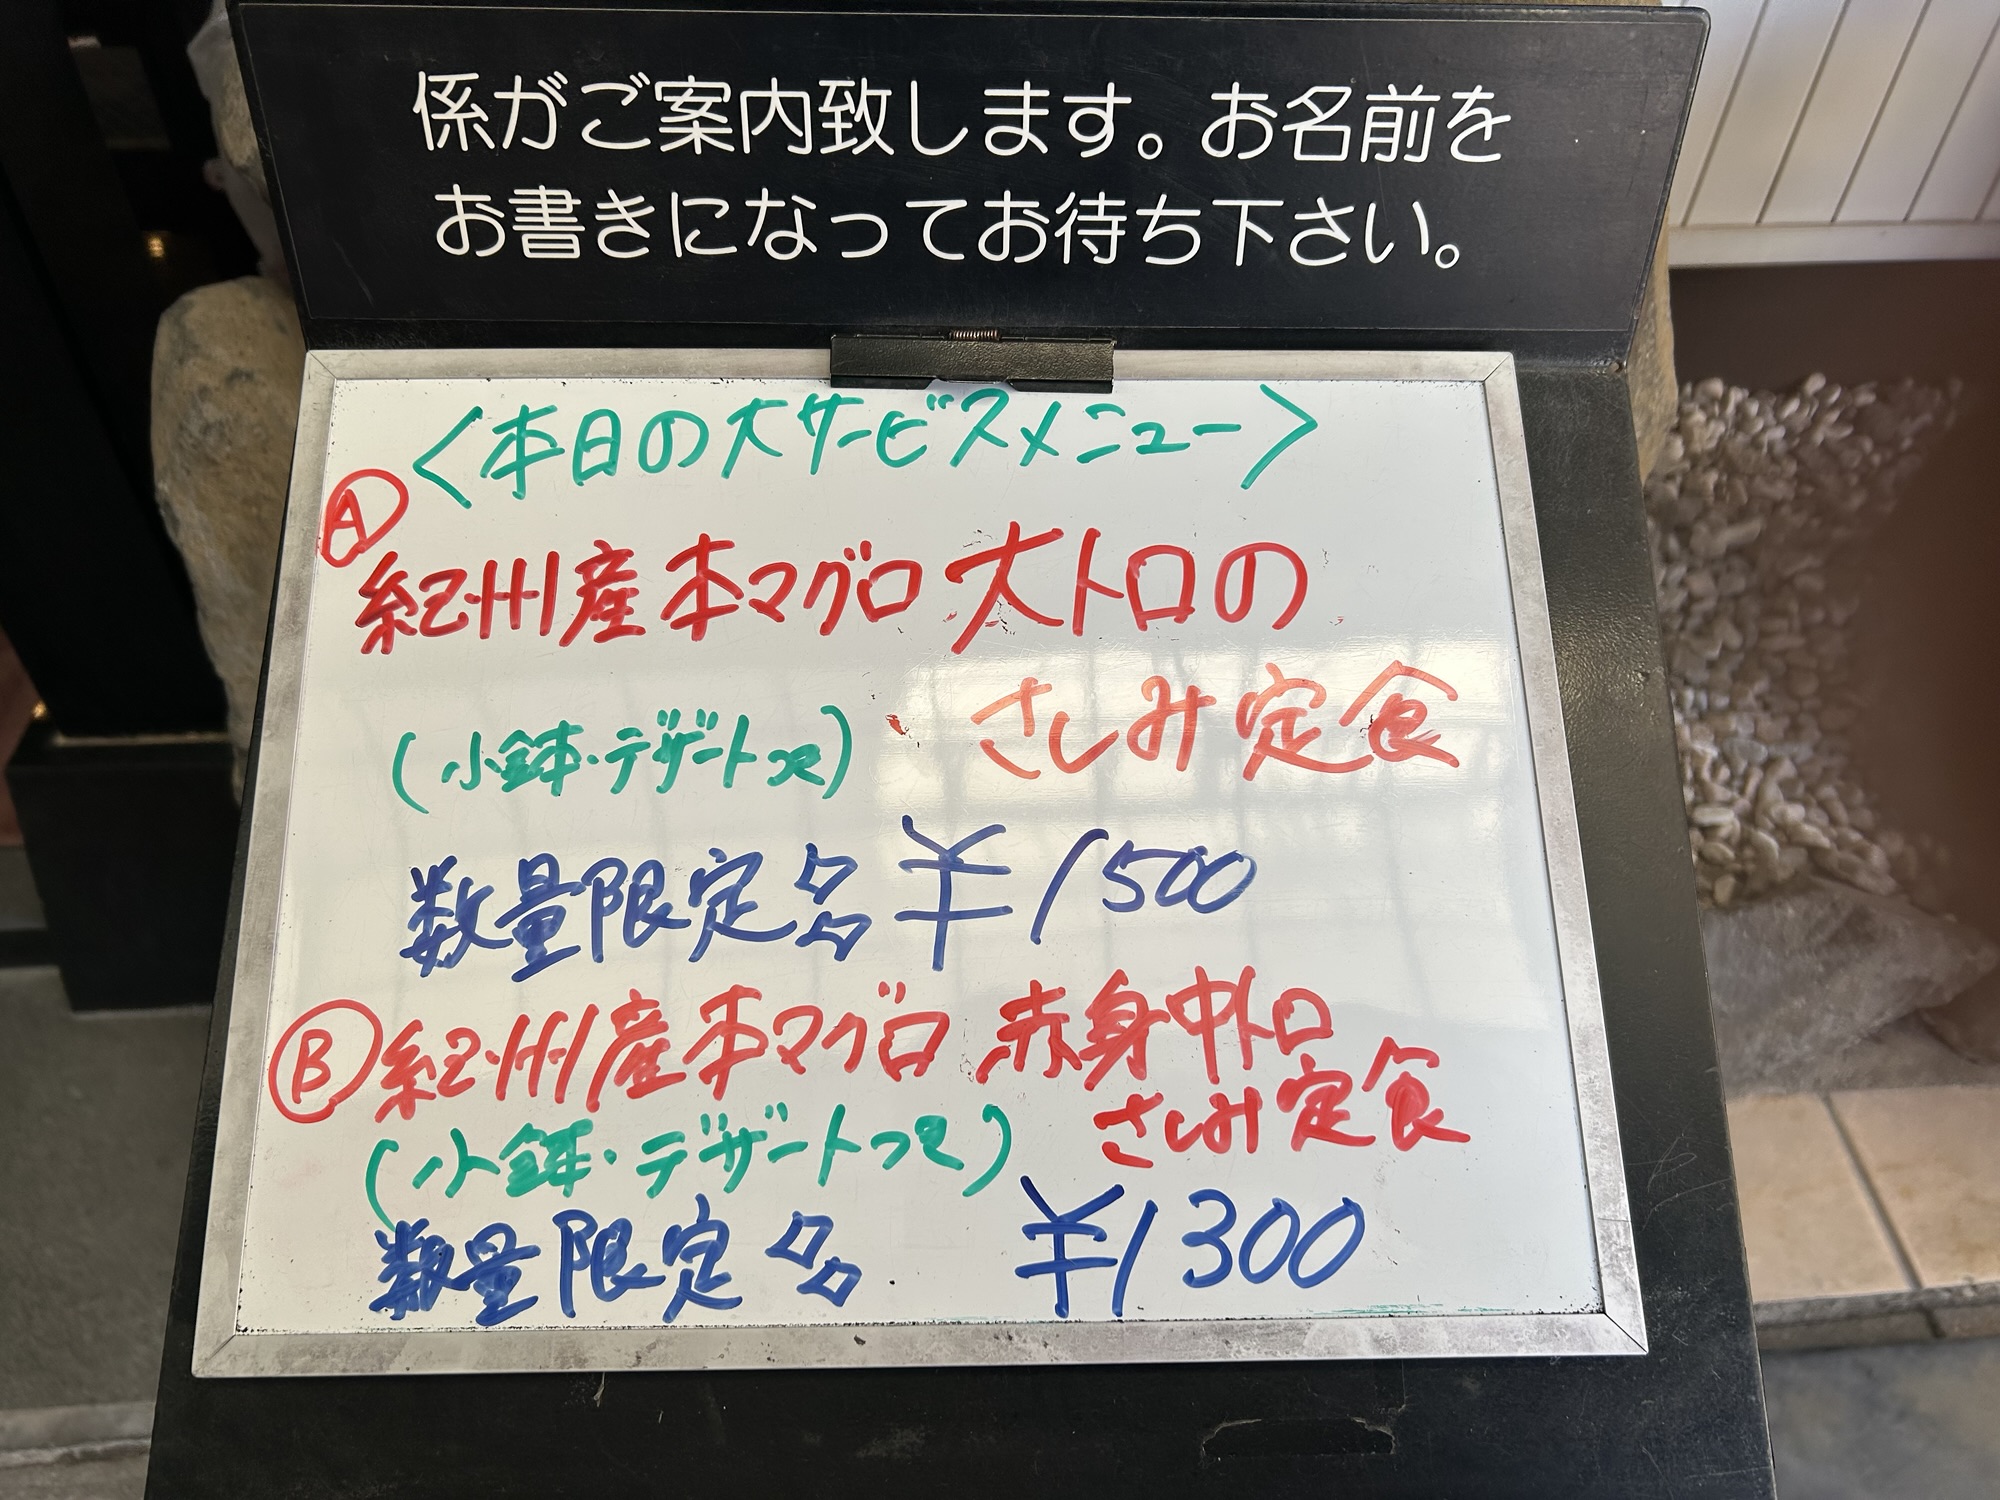 係がご案内致します。お名前を
お書きになってお待ち下さい。
<本日の大サービスメニュー>
Ⓐ
紀州産本マグロ大トロの
さしみ定食
(小鉢・デザートつき)
数量限定 ¥1500
Ⓑ紀州産本マグロ 赤身中トロ
さしみ定食
(小鉢・デザートつき)
数量限定 ¥1300